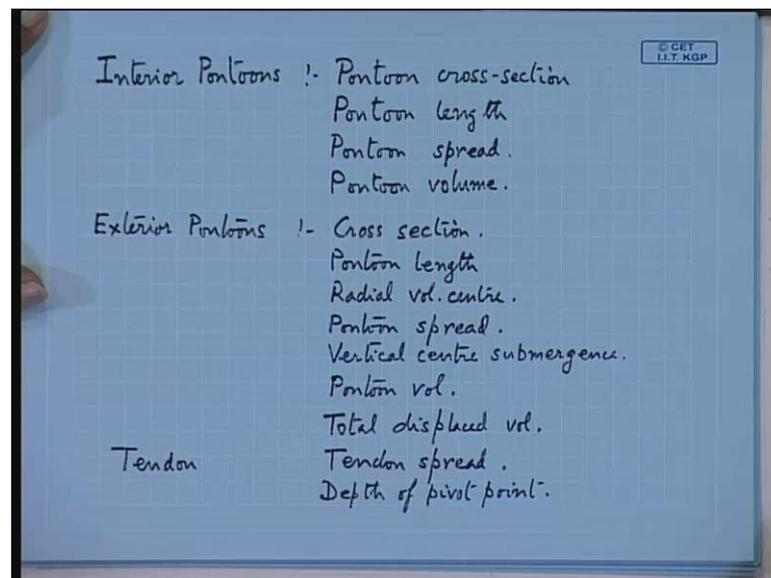 © CET
I.I.T. KGP
Interior Pontoons :- Pontoon cross-section
Pontoon length
Pontoon spread.
Pontoon volume.
Exterior Pontoons :- Cross section.
Pontoon length
Radial vol. centre.
Pontoon spread.
Vertical centre submergence.
Pontoon vol.
Total displaced vol.
Tendon Tendon spread.
Depth of pivot point.